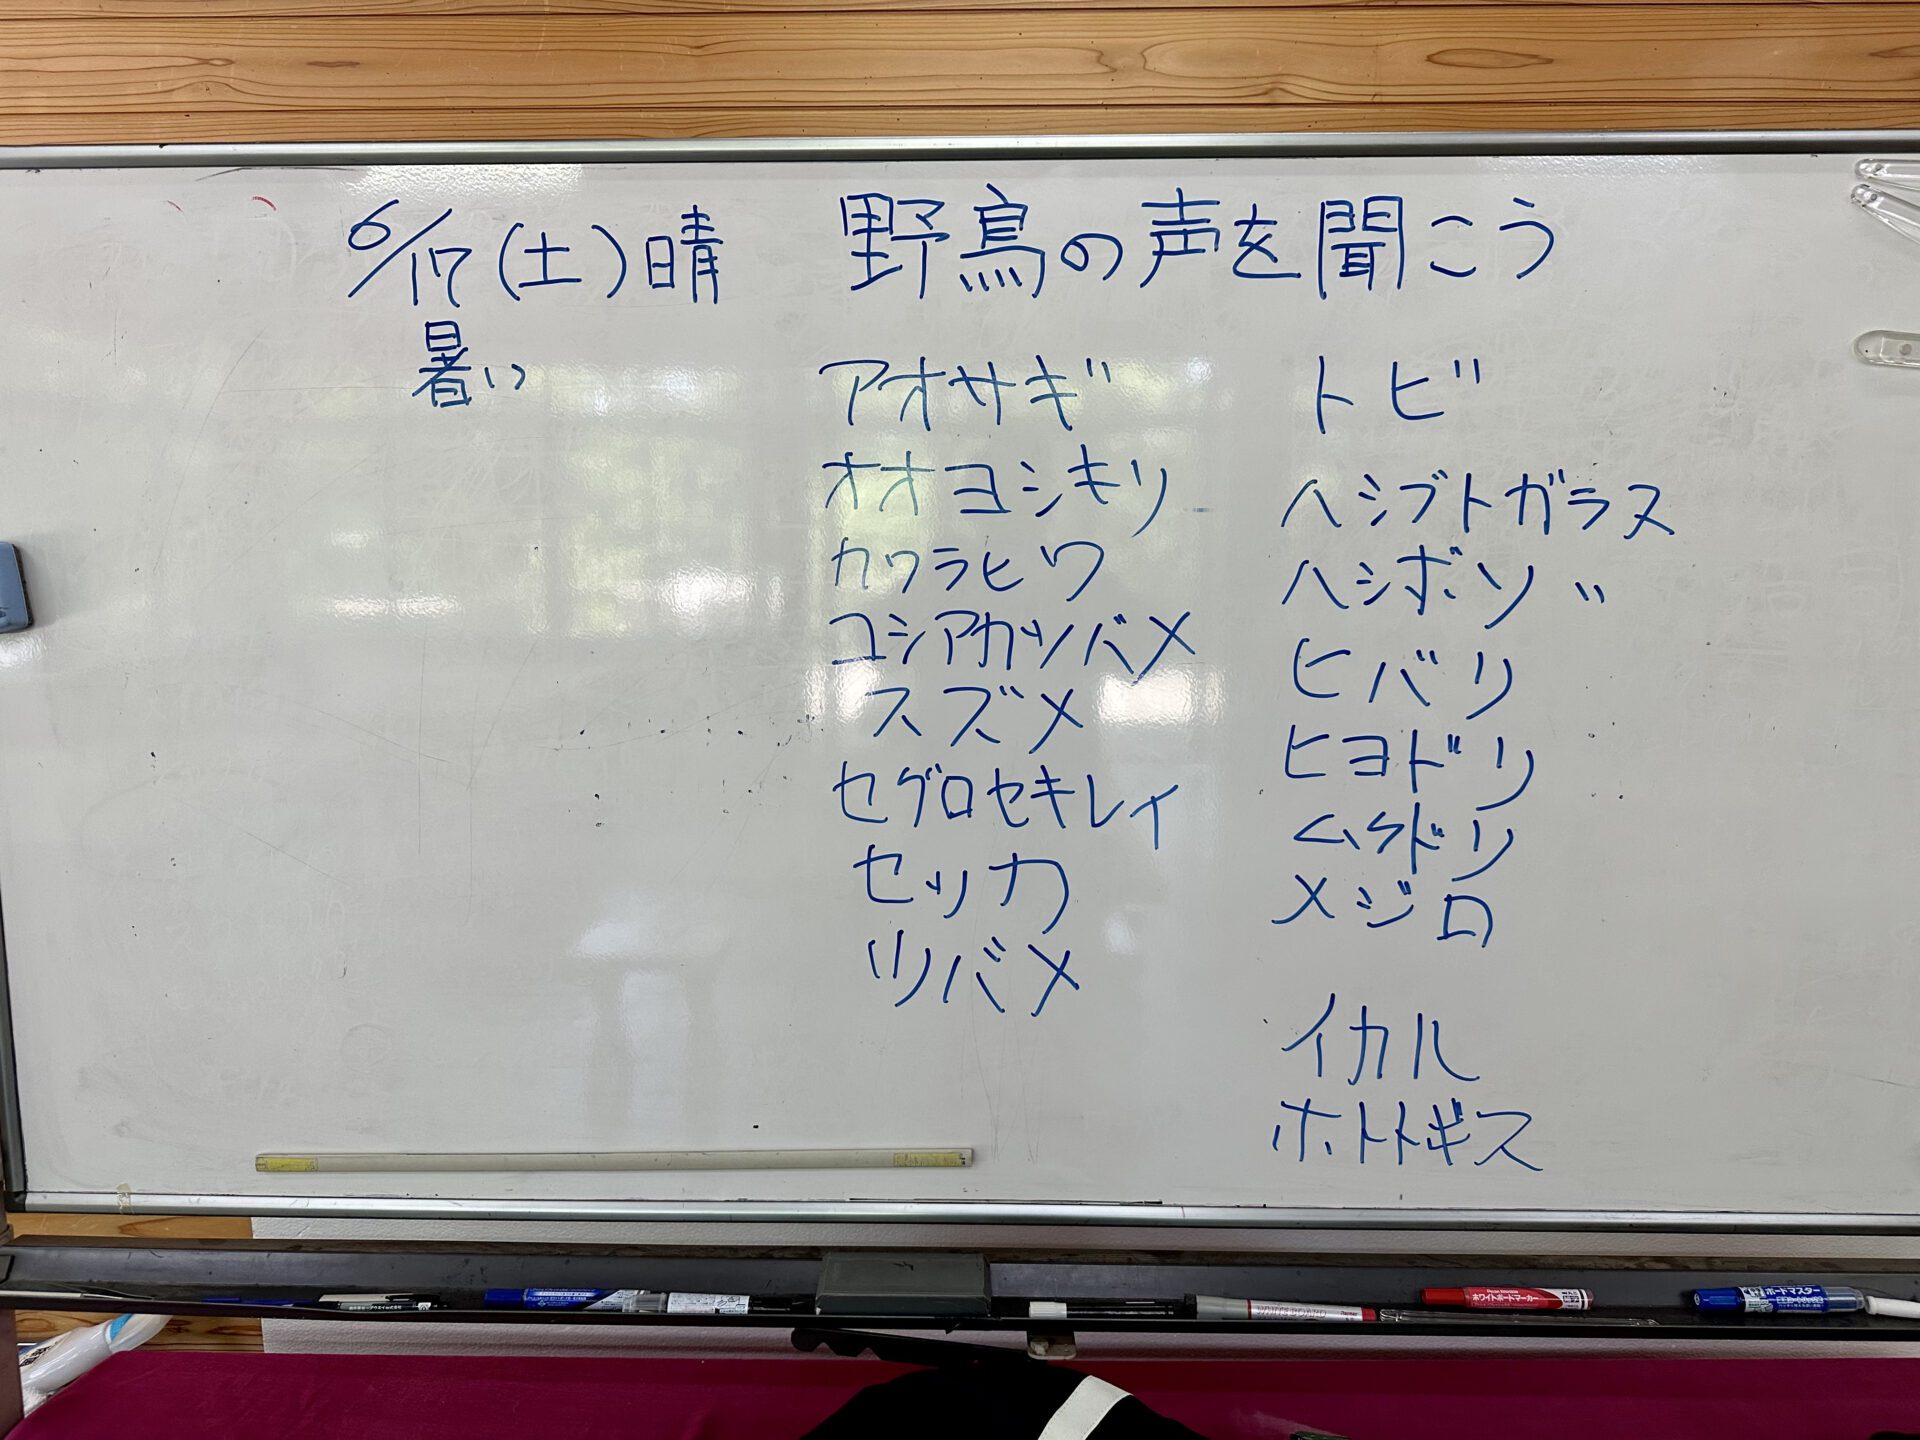 6/17(土)晴
暑い
野鳥の声を聞こう
アオサギ
オオヨシキリ
カワラヒワ
コシアカツバメ
スズメ
セグロセキレイ
セッカ
ツバメ
トビ
ハシブトガラス
ハシボソ〃
ヒバリ
ヒヨドリ
ムクドリ
メジロ
イカル
ホトトギス
ホワイトボードマーカー
ボードマスター